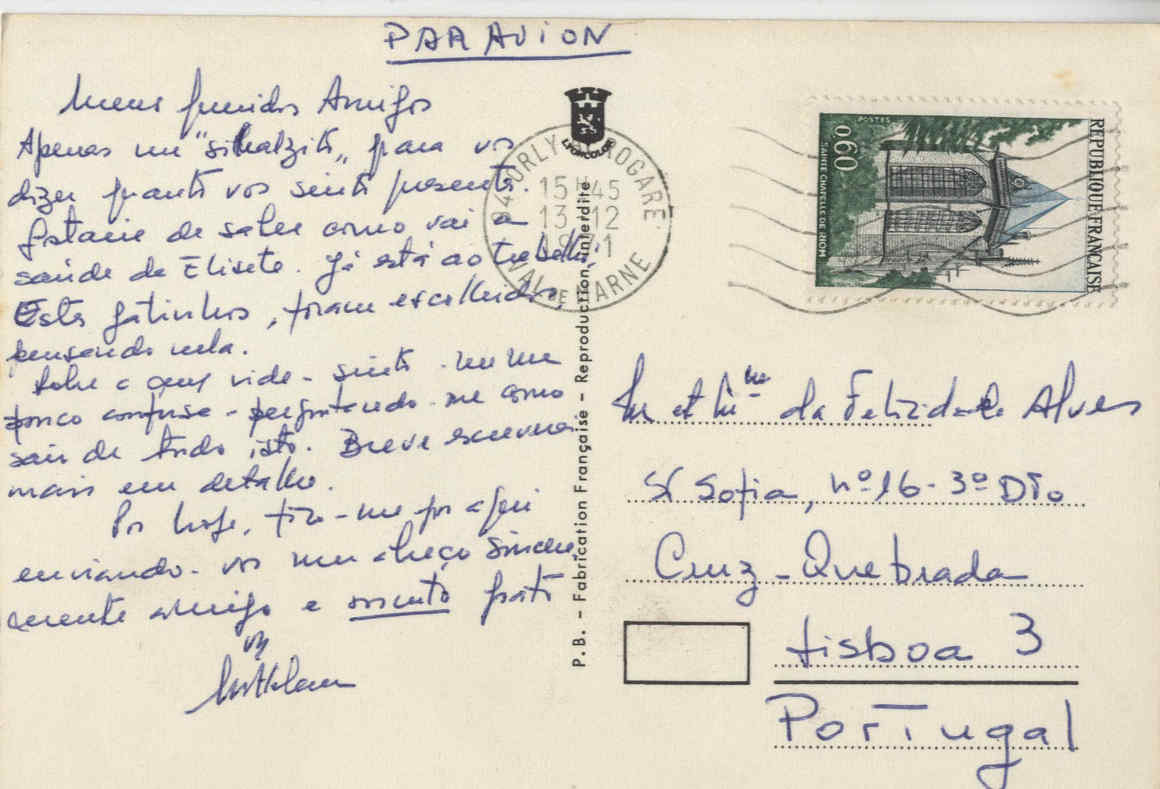 PAR AVION
Meus queridos Amigos
Apenas um "sinalzito" para vos
dizer quanto vos sinto presente.
Gostaria de saber como vai a
saúde da Elisete. Já está ao trabalho?
Estes gatinhos, foram escolhidos
pensando nela.
Sobre a vida - sinto-me um
pouco confusa - perguntando-me como
sair de tudo isto. Breve escreverei
mais em detalho.
Por hoje, fico-me por aqui
enviando-vos um abraço sincera
mente amigo e muito grato
LYONCOLOR
ORLY AEROGARE
15H45
13-12
1971
VAL DE MARNE
P.B. - Fabrication Française - Reproduction interdite
POSTES
0,60
SAINTE CHAPELLE RIOM
REPUBLIQUE FRANÇAISE
Mr et Mme da Felizidade Alves
R Sofia, nº 16 - 3º DTo
Cruz-Quebrada
Lisboa 3
Portugal